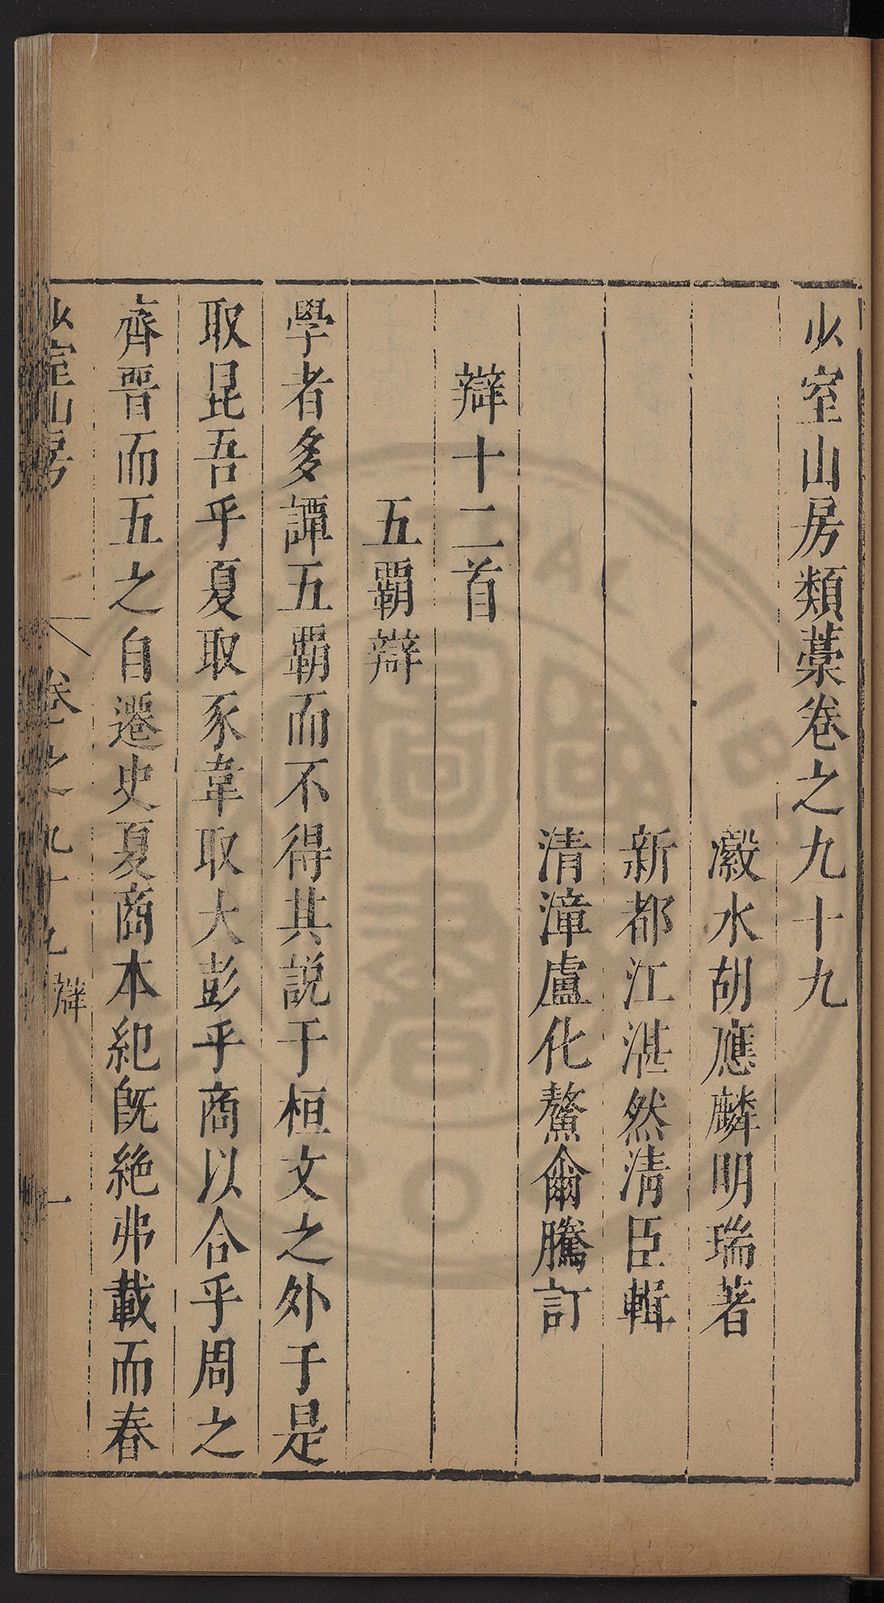 少室山房類藁卷之九十九
瀫水胡應麟明瑞著
新都江湛然清臣輯
清漳盧化鰲爾騰訂
辯十二首
五覇辯
學者多譚五覇而不得其説于桓文之外于是
取昆吾乎夏取豕韋取大彭乎商以合乎周之
齊晉而五之自遷史夏商本紀旣絶弗載而春
少室山房
卷之九十九
辯
一